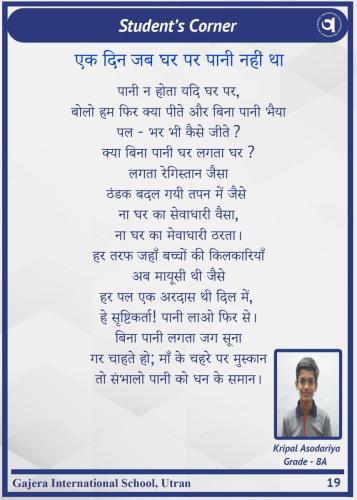 Student's Corner
एक दिन जब घर पर पानी नही था
पानी न होता यदि घर पर,
बोलो हम फिर क्या पीते और बिना पानी भैया
पल - भर भी कैसे जीते ?
क्या बिना पानी घर लगता घर ?
लगता रेगिस्तान जैसा
ठंडक बदल गयी तपन में जैसे
ना घर का सेवाधारी वैसा,
ना घर का मेवाधारी ठरता।
हर तरफ जहाँ बच्चों की किलकारियाँ
अब मायूसी थी जैसे
हर पल एक अरदास थी दिल में,
हे सृष्टिकर्ता! पानी लाओ फिर से।
बिना पानी लगता जग सूना
गर चाहते हो; माँ के चहरे पर मुस्कान
तो संभालो पानी को धन के समान।
Kripal Asodariya
Grade - 8A
Gajera International School, Utran
19